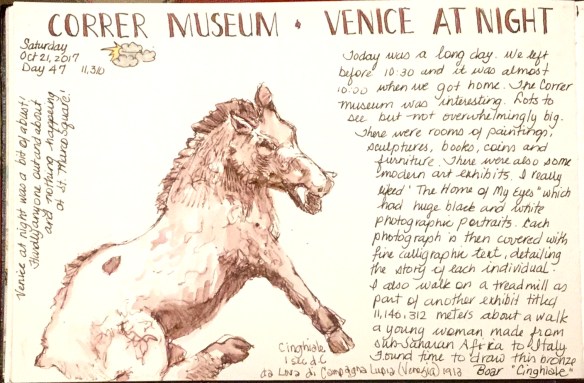 CORRER MUSEUM • VENICE AT NIGHT
Saturday
Oct 21, 2017
Day 47 11,310
Venice at night was a bit of a bust!
Hardly anyone out and about
and nothing happening
at St. Marco Square!
Today was a long day. We left
before 10:30 and it was almost
10:00 when we got home. The Correr
museum was interesting. Lots to
see but not overwhelmingly big.
There were rooms of paintings,
sculptures, books, coins and
furniture. There were also some
modern art exhibits. I really
liked "The Home of My Eyes" which
had huge black and white
photographic portraits. Each
photograph is then covered with
fine calligraphic text, detailing
the story of each individual.
I also walk on a treadmill as
part of another exhibit titled
11,146,312 meters about a walk
a young woman made from
sub-Saharan Africa to Italy
I found time to draw this bronze
Boar "Cinghiale"
Cinghiale
1 sec d.C
da Lova di Campagna Lupia (Venezia) 1913